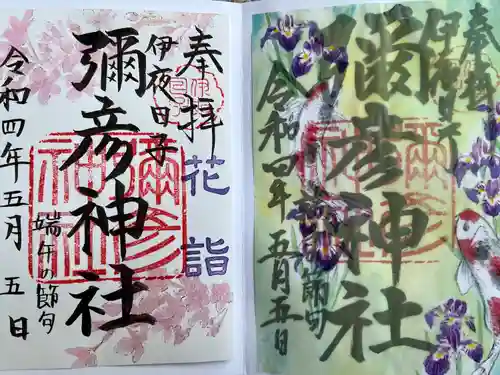 奉拝
花詣
伊夜日子
彌彦神社
端午の節句
令和四年五月五日
奉拝
伊夜日子
彌彦神社
端午の節句
令和四年五月五日